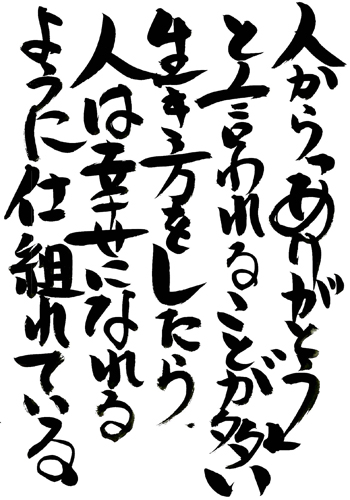 人から「ありがとう」
と言われることが多い
生き方をしたら、
人は幸せになれる
ように仕組れている